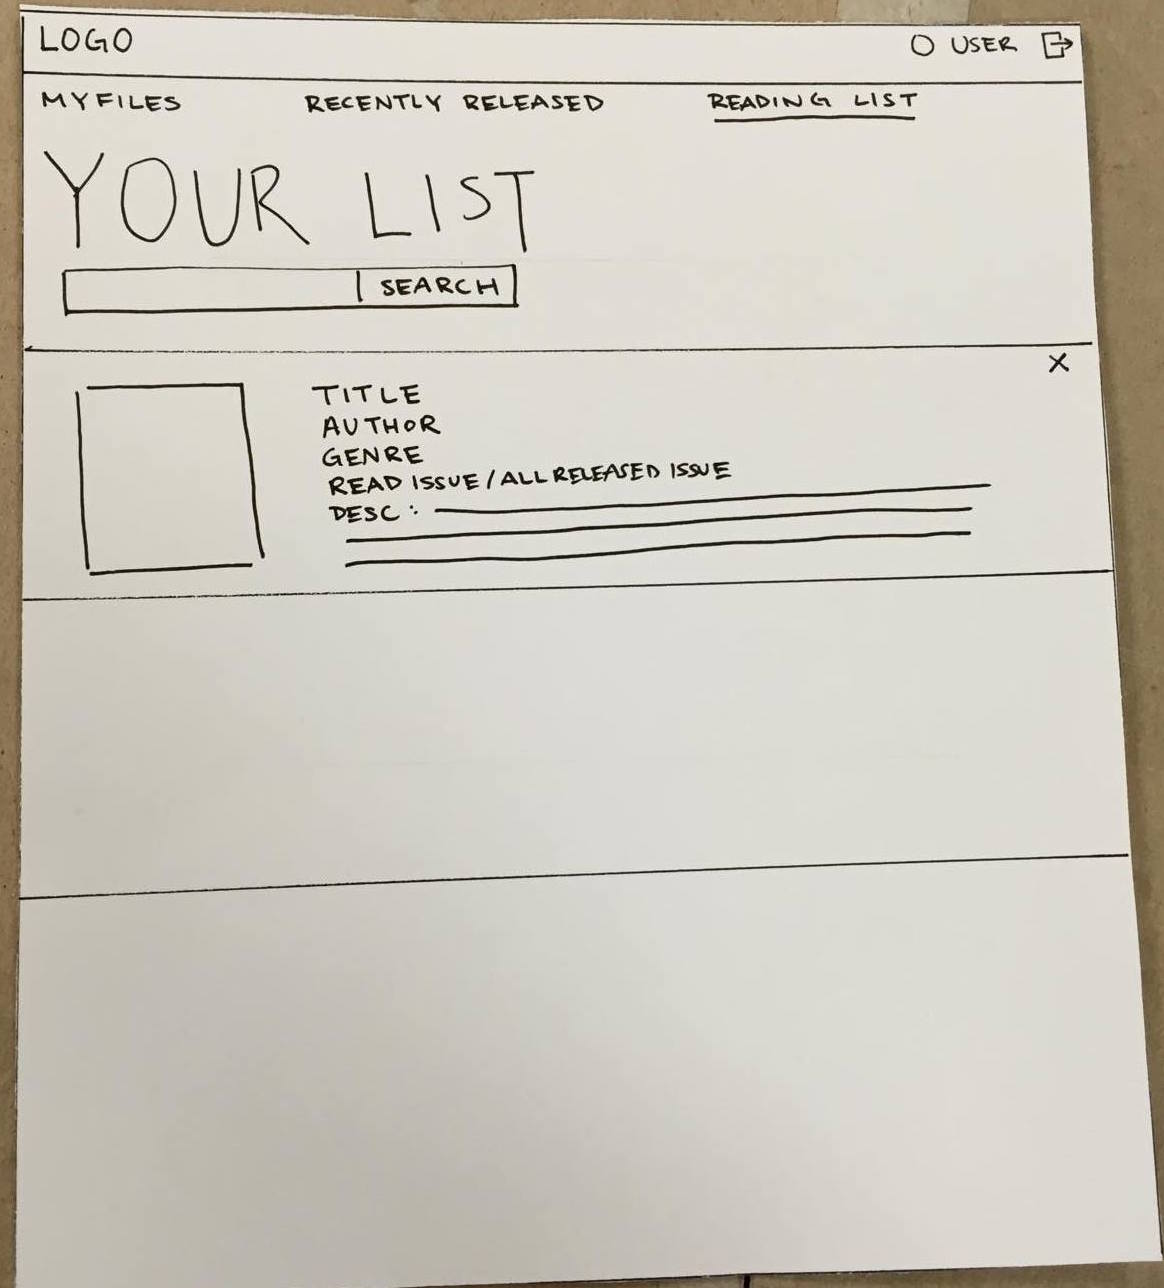 LOGO USER
MY FILES RECENTLY RELEASED READING LIST
YOUR LIST
SEARCH
X
TITLE
AUTHOR
GENRE
READ ISSUE / ALL RELEASED ISSUE
DESC :